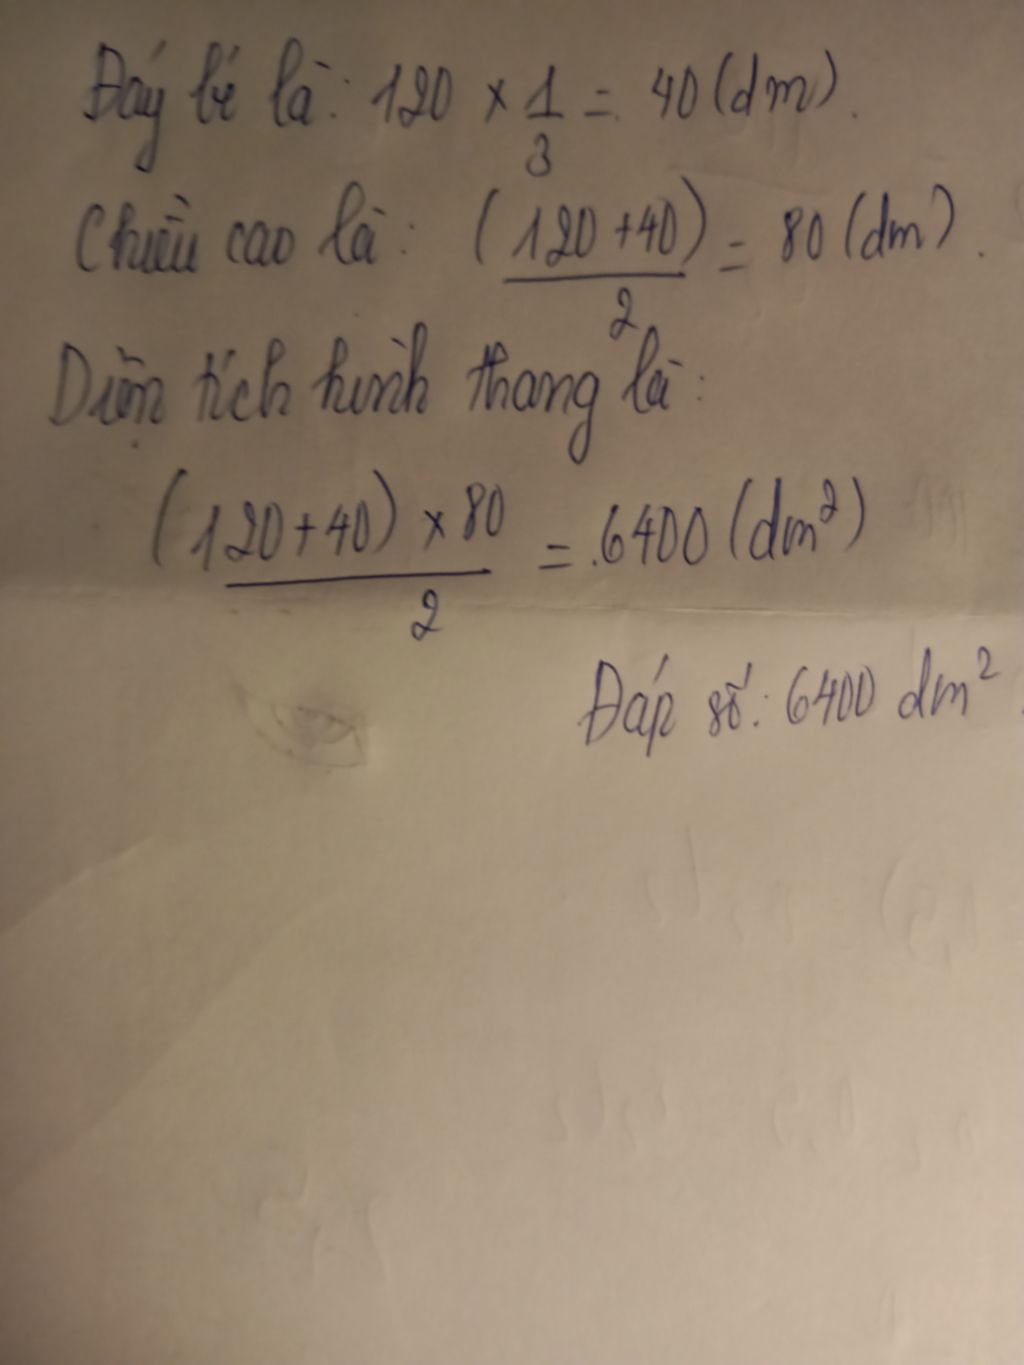 Đáy bé là: 120 × 1/3 = 40 (dm).
Chiều cao là: (120 + 40)/2 = 80 (dm).
Diện tích hình thang là:
(120 + 40) × 80/2 = 6400 (dm²)
Đáp số: 6400 dm².